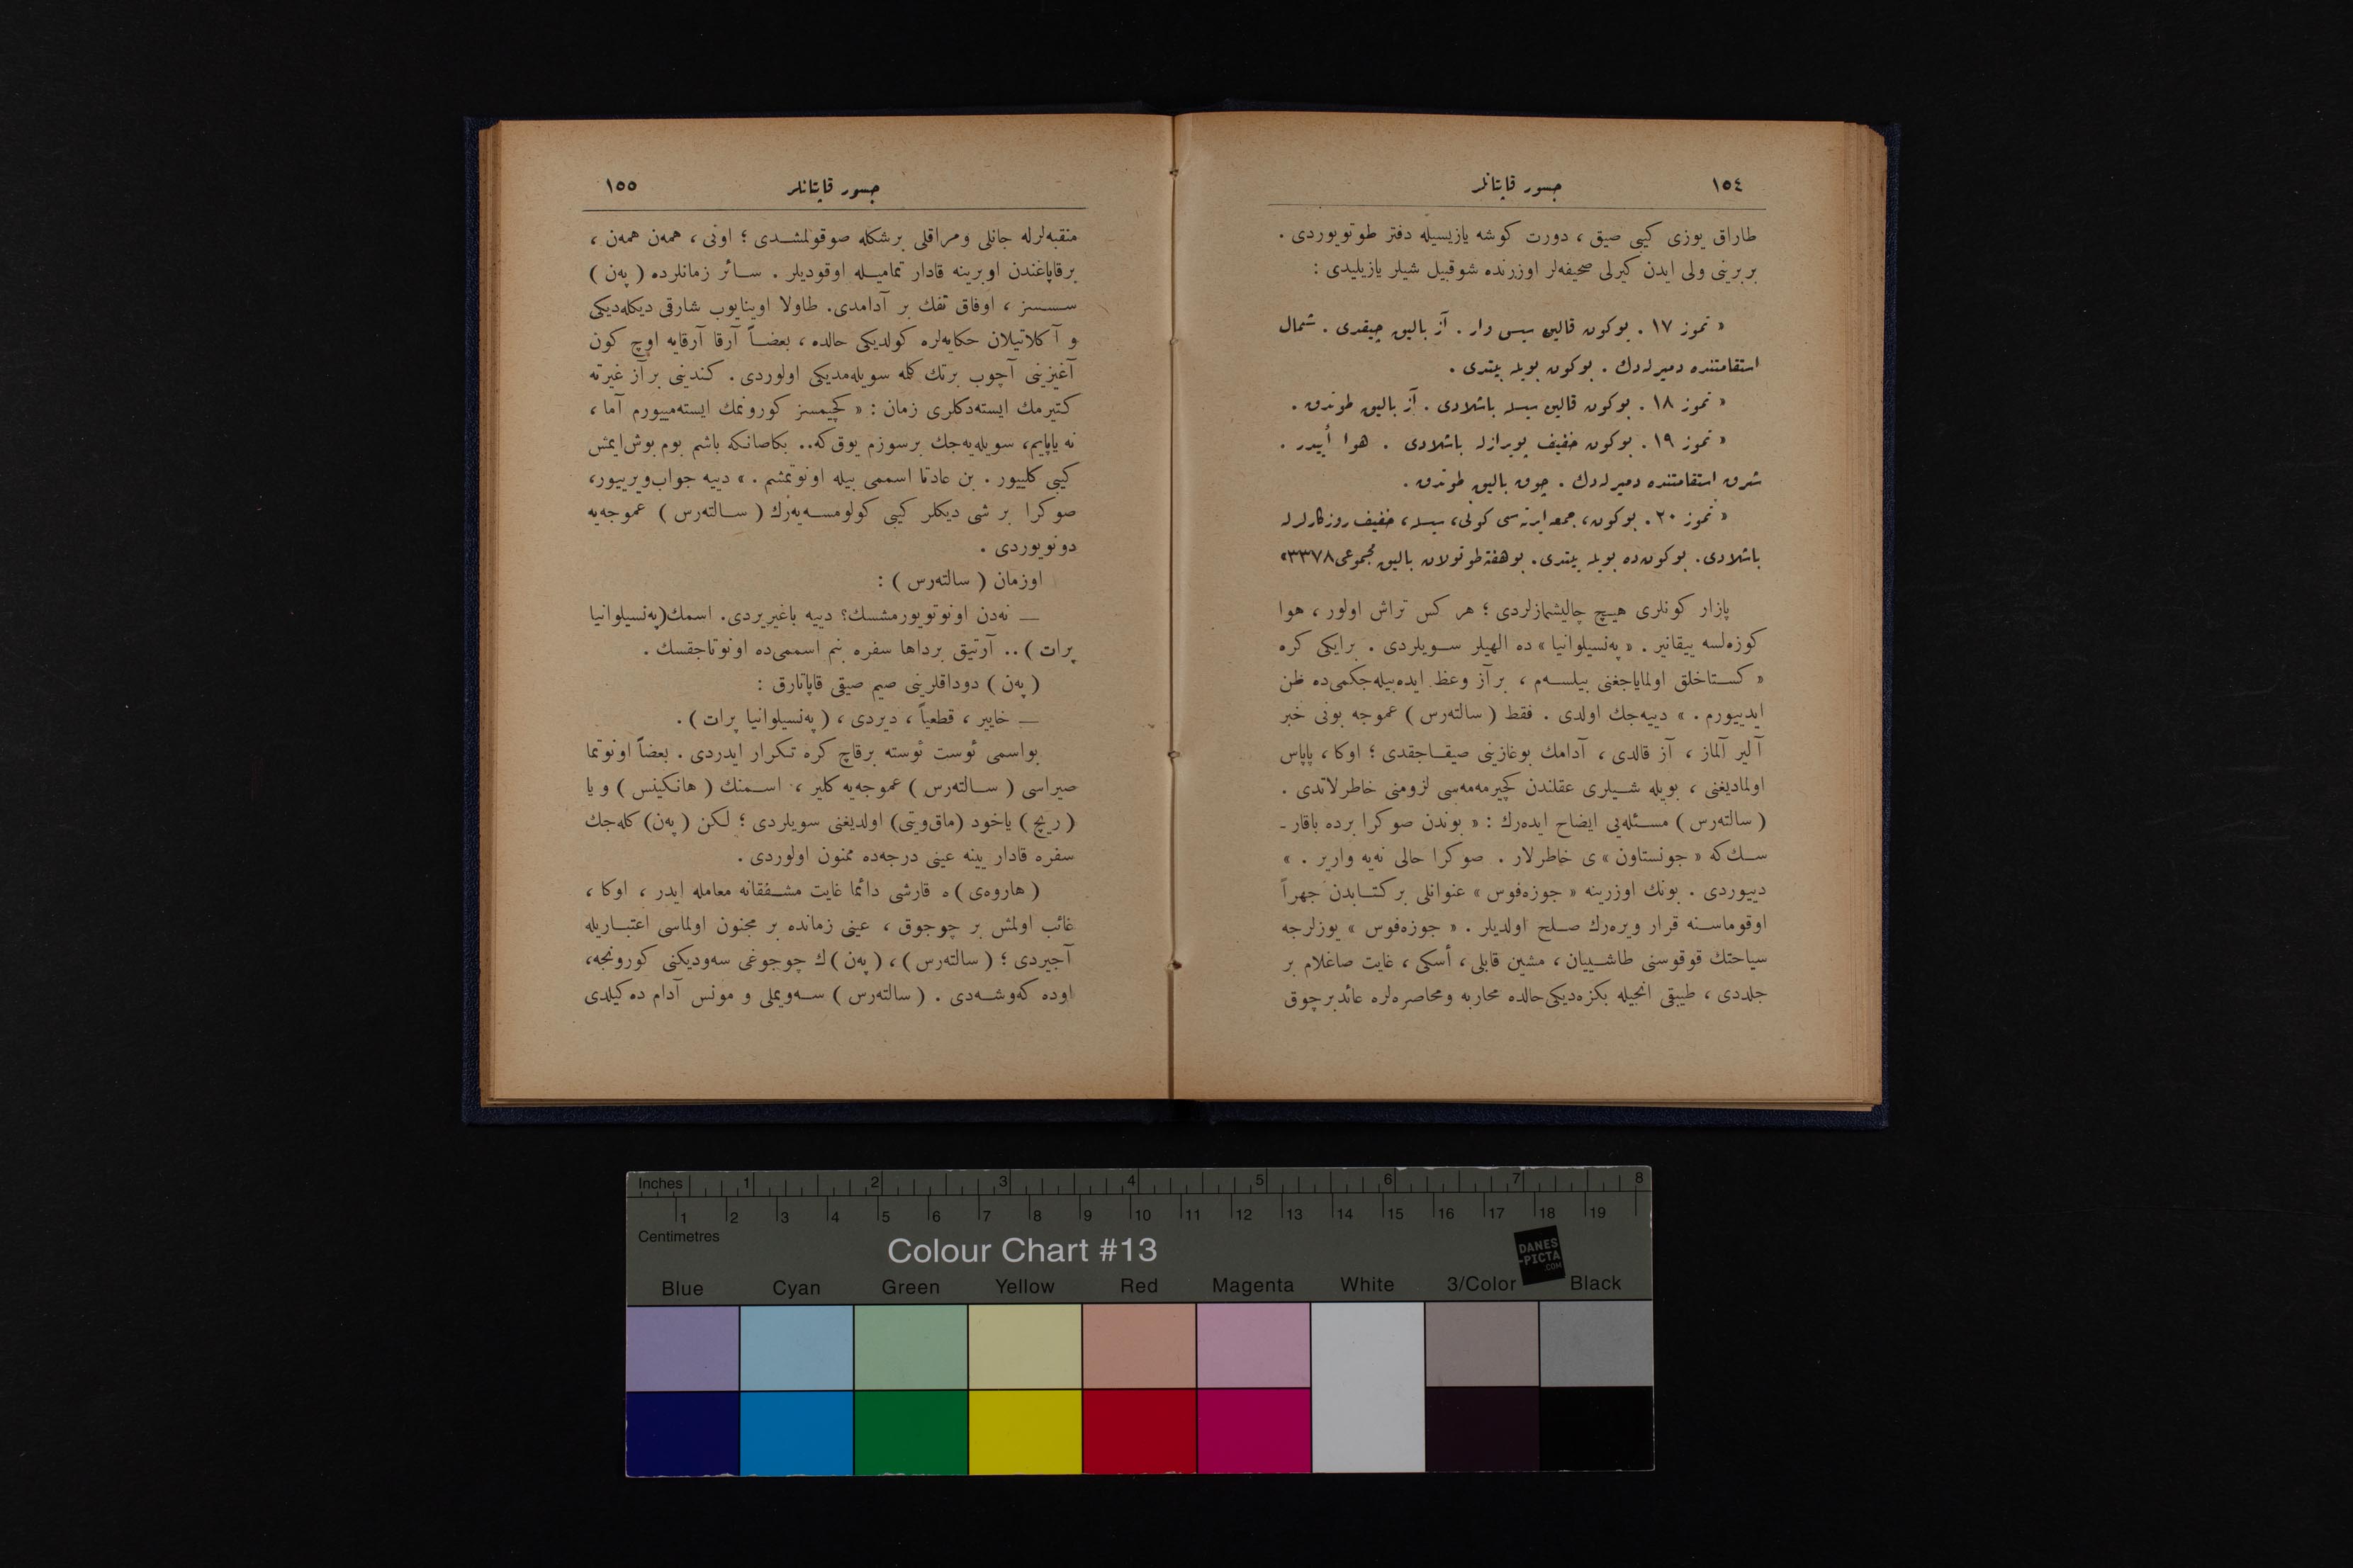 ١٥٤
جسور قاپتانلر
طاراق یوزی كیبی صیق ، دورت كوشه یازیسیله دفتر طوتویوردی .
بربرینی ولی ایدن كیرلی صحیفه‌لر اوزرنده شوقبیل شیلر یازیلیدی :
« تموز ١٧ . بوكون قالین سیس وار . آز بالیق چیقدی . شمال
استقامتنده دمیرله‌دك . بوكون بویله بیتدی .
« تموز ١٨ . بوكون قالین سیسله باشلادی . آز بالیق طوتدق .
« تموز ١٩ . بوكون خفیف پویرازله باشلادی . هوا أییدر .
شرق استقامتنده دمیرله‌دك . چوق بالیق طوتدق .
« تموز ٢٠ . بوكون، جمعه ایرته‌سی كونی، سیسله، خفیف روزكارلرله
باشلادی. بوكون‌ده بویله بیتدی. بوهفته طوتولان بالیق مجموعی ٣٣٧٨»
پازار كونلری هیچ چالیشمازلردی ؛ هر كس تراش اولور ، هوا
كوزه‌لسه ییقانیر . « په‌نسیلوانیا » ده الهیلر سویلردی . برایكی كره
« كستاخلق اولمایاجغنی بیلسه‌م ، برآز وعظ ایده‌بیله‌جكمی‌ده ظن
ایدییورم . » دییه‌جك اولدی . فقط ( سالته‌رس ) عموجه بونی خبر
آلیر آلماز ، آز قالدی ، آدامك بوغازینی صیقاجقدی ؛ اوكا ، پاپاس
اولمادیغنی ، بویله شیلری عقلندن كچیرمه‌مه‌سی لزومنی خاطرلاتدی .
( سالته‌رس ) مسئله‌یی ایضاح ایده‌رك : « بوندن صوكرا برده باقار-
سك‌كه « جونستاون » ی خاطرلار . صوكرا حالی نه‌یه واریر . »
دییوردی . بونك اوزرینه « جوزه‌فوس » عنوانلی بركتابدن جهراً
اوقوماسنه قرار ویره‌رك صلح اولدیلر . « جوزه‌فوس » یوزلرجه
سیاحتك قوقوسنی طاشییان ، مشین قابلی ، أسكی ، غایت صاغلام بر
جلددی ، طیبقی انجیله بكزه‌دیكی حالده محاربه ومحاصره‌لره عائد برچوق
جسور قاپتانلر
١٥٥
منقبه‌لرله جانلی ومراقلی برشكله صوقولمشدی ؛ اونی ، همه‌ن همه‌ن ،
برقاپاغندن اوبرینه قادار تمامیله اوقودیلر . سائر زمانلرده ( په‌ن )
سسسز ، اوفاق تفك بر آدامدی. طاولا اوینایوب شارقی دیكله‌دیكی
و آكلاتیلان حكایه‌لره كولدیكی حالده ، بعضاً آرقا آرقایه اوچ كون
آغیزینی آچوب برتك كله سویله‌مدیكی اولوردی . كندینی برآز غیرته
كتیرمك ایسته‌دكلری زمان : « كچیمسز كورونمك ایسته‌مییورم آما ،
نه یاپایم، سویله‌یه‌جك برسوزم یوق‌كه.. بكاصانكه باشم بوم بوش‌ایمش
كیبی كلییور . بن عادتا اسممی بیله اونوتمشم . » دییه جواب‌ویرییور،
صوكرا بر شی دیكلر كیبی كولومسه‌یه‌رك ( سالته‌رس ) عموجه‌یه
دونویوردی .
اوزمان ( سالته‌رس ) :
— نه‌دن اونوتویورمشسك؟ دییه باغیریردی. اسمك(په‌نسیلوانیا
پرات ) .. آرتیق برداها سفره بنم اسممی‌ده اونوتاجقسك .
( په‌ن ) دوداقلرینی صیم صیقی قاپاتارق :
— خاییر ، قطعیاً ، دیردی ، ( په‌نسیلوانیا پرات ) .
بواسمی ئوست ئوسته برقاچ كره تكرار ایدردی . بعضاً اونوتما
صیراسی ( سالته‌رس ) عموجه‌یه كلیر ، اسمنك ( هانكینس ) و یا
( ریچ ) یاخود (ماق‌ویتی) اولدیغنی سویلردی ؛ لكن ( په‌ن) كله‌جك
سفره قادار یینه عینی درجه‌ده ممنون اولوردی .
( هاروه‌ی ) ه قارشی دائما غایت مشفقانه معامله ایدر ، اوكا ،
غائب اولمش بر چوجوق ، عینی زمانده بر مجنون اولماسی اعتباریله
آجیردی ؛ ( سالته‌رس ) ، ( په‌ن ) ك چوجوغی سه‌ودیكنی كورونجه،
اوده كه‌وشه‌دی . ( سالته‌رس ) سه‌ویملی و مونس آدام ده‌كیلدی
Inches 1 2 3 4 5 6 7 8
1 2 3 4 5 6 7 8 9 10 11 12 13 14 15 16 17 18 19
Centimetres
Colour Chart #13
DANES
-PICTA
.COM
Blue Cyan Green Yellow Red Magenta White 3/Color Black